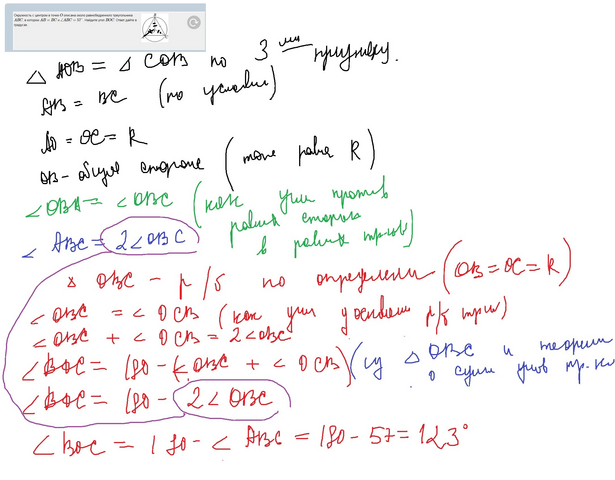 Окружность с центром в точке O описана около равнобедренного треугольника
ABC, в котором AB = BC и ∠ABC = 57°. Найдите угол BOC. Ответ дайте в
градусах.
△ AOB = △ COB по 3 ему признаку.
AB = BC (по условию)
AO = OC = R
OB - общая сторона (тоже равна R)
∠OBA = ∠OBC (как углы против
равных сторон
в равных тр-ках)
∠ ABC = 2∠OBC
△ OBC - р/б по определению (OB = OC = R)
∠OBC = ∠OCB (как углы у основания р/б тр-ка)
∠OBC + ∠OCB = 2∠OBC
∠BOC = 180 - (∠OBC + ∠OCB) (из △ OBC и теоремы
о сумме углов тр-ка
∠BOC = 180 - 2∠OBC
∠BOC = 180 - ∠ ABC = 180 - 57 = 123°